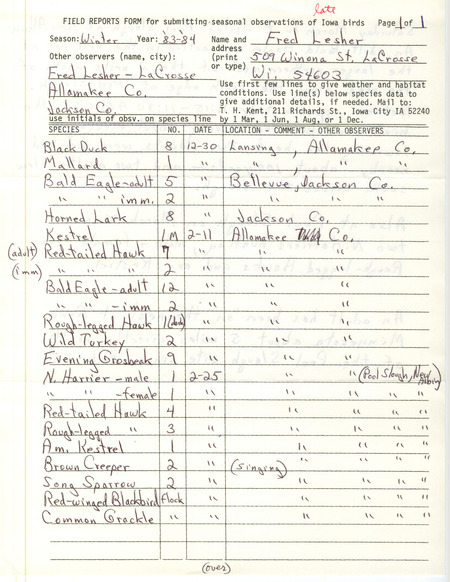 late
FIELD REPORTS FORM for submitting seasonal observations of Iowa birds Page 1 of 1
Season: Winter Year: '83-84 Name and address (print or type) Fred Lesher
Other observers (name, city): 509 Winona St. LaCrosse
Fred Lesher - LaCrosse Wi. 54603
Allamakee Co.
Jackson Co.
Use first few lines to give weather and habitat
conditions. Use line(s) below species data to
give additional details, if needed. Mail to:
T. H. Kent, 211 Richards St., Iowa City IA 52240
use initials of obsv. on species line by 1 Mar, 1 Jun, 1 Aug, or 1 Dec.
SPECIES NO. DATE LOCATION - COMMENT - OTHER OBSERVERS
Black Duck 8 12-30 Lansing, Allamakee Co.
Mallard 1 " " , " "
Bald Eagle-adult 5 " Bellevue, Jackson Co.
" " imm. 2 " " " "
Horned Lark 8 " Jackson Co.
Kestrel 1M 2-11 Allamakee Co.
(adult) Red-tailed Hawk 7 " " "
(imm) " " " 2 " " "
Bald Eagle-adult 12 " " "
" " -imm 2 " " "
Rough-legged Hawk 1(dark) " " "
Wild Turkey 2 " " "
Evening Grosbeak 9 " " "
N. Harrier-male 1 2-25 " " (Pool Slough, New Albin)
" " -female 1 " " " " " "
Red-tailed Hawk 4 " " " " " "
Rough-legged " 3 " " " " " "
Am. Kestrel 1 " " " " " "
Brown Creeper 2 " (Singing) " " " " "
Song Sparrow 2 " " " " " "
Red-winged Blackbird Flock " " " " " "
Common Grackle " " " " " " "
(over)